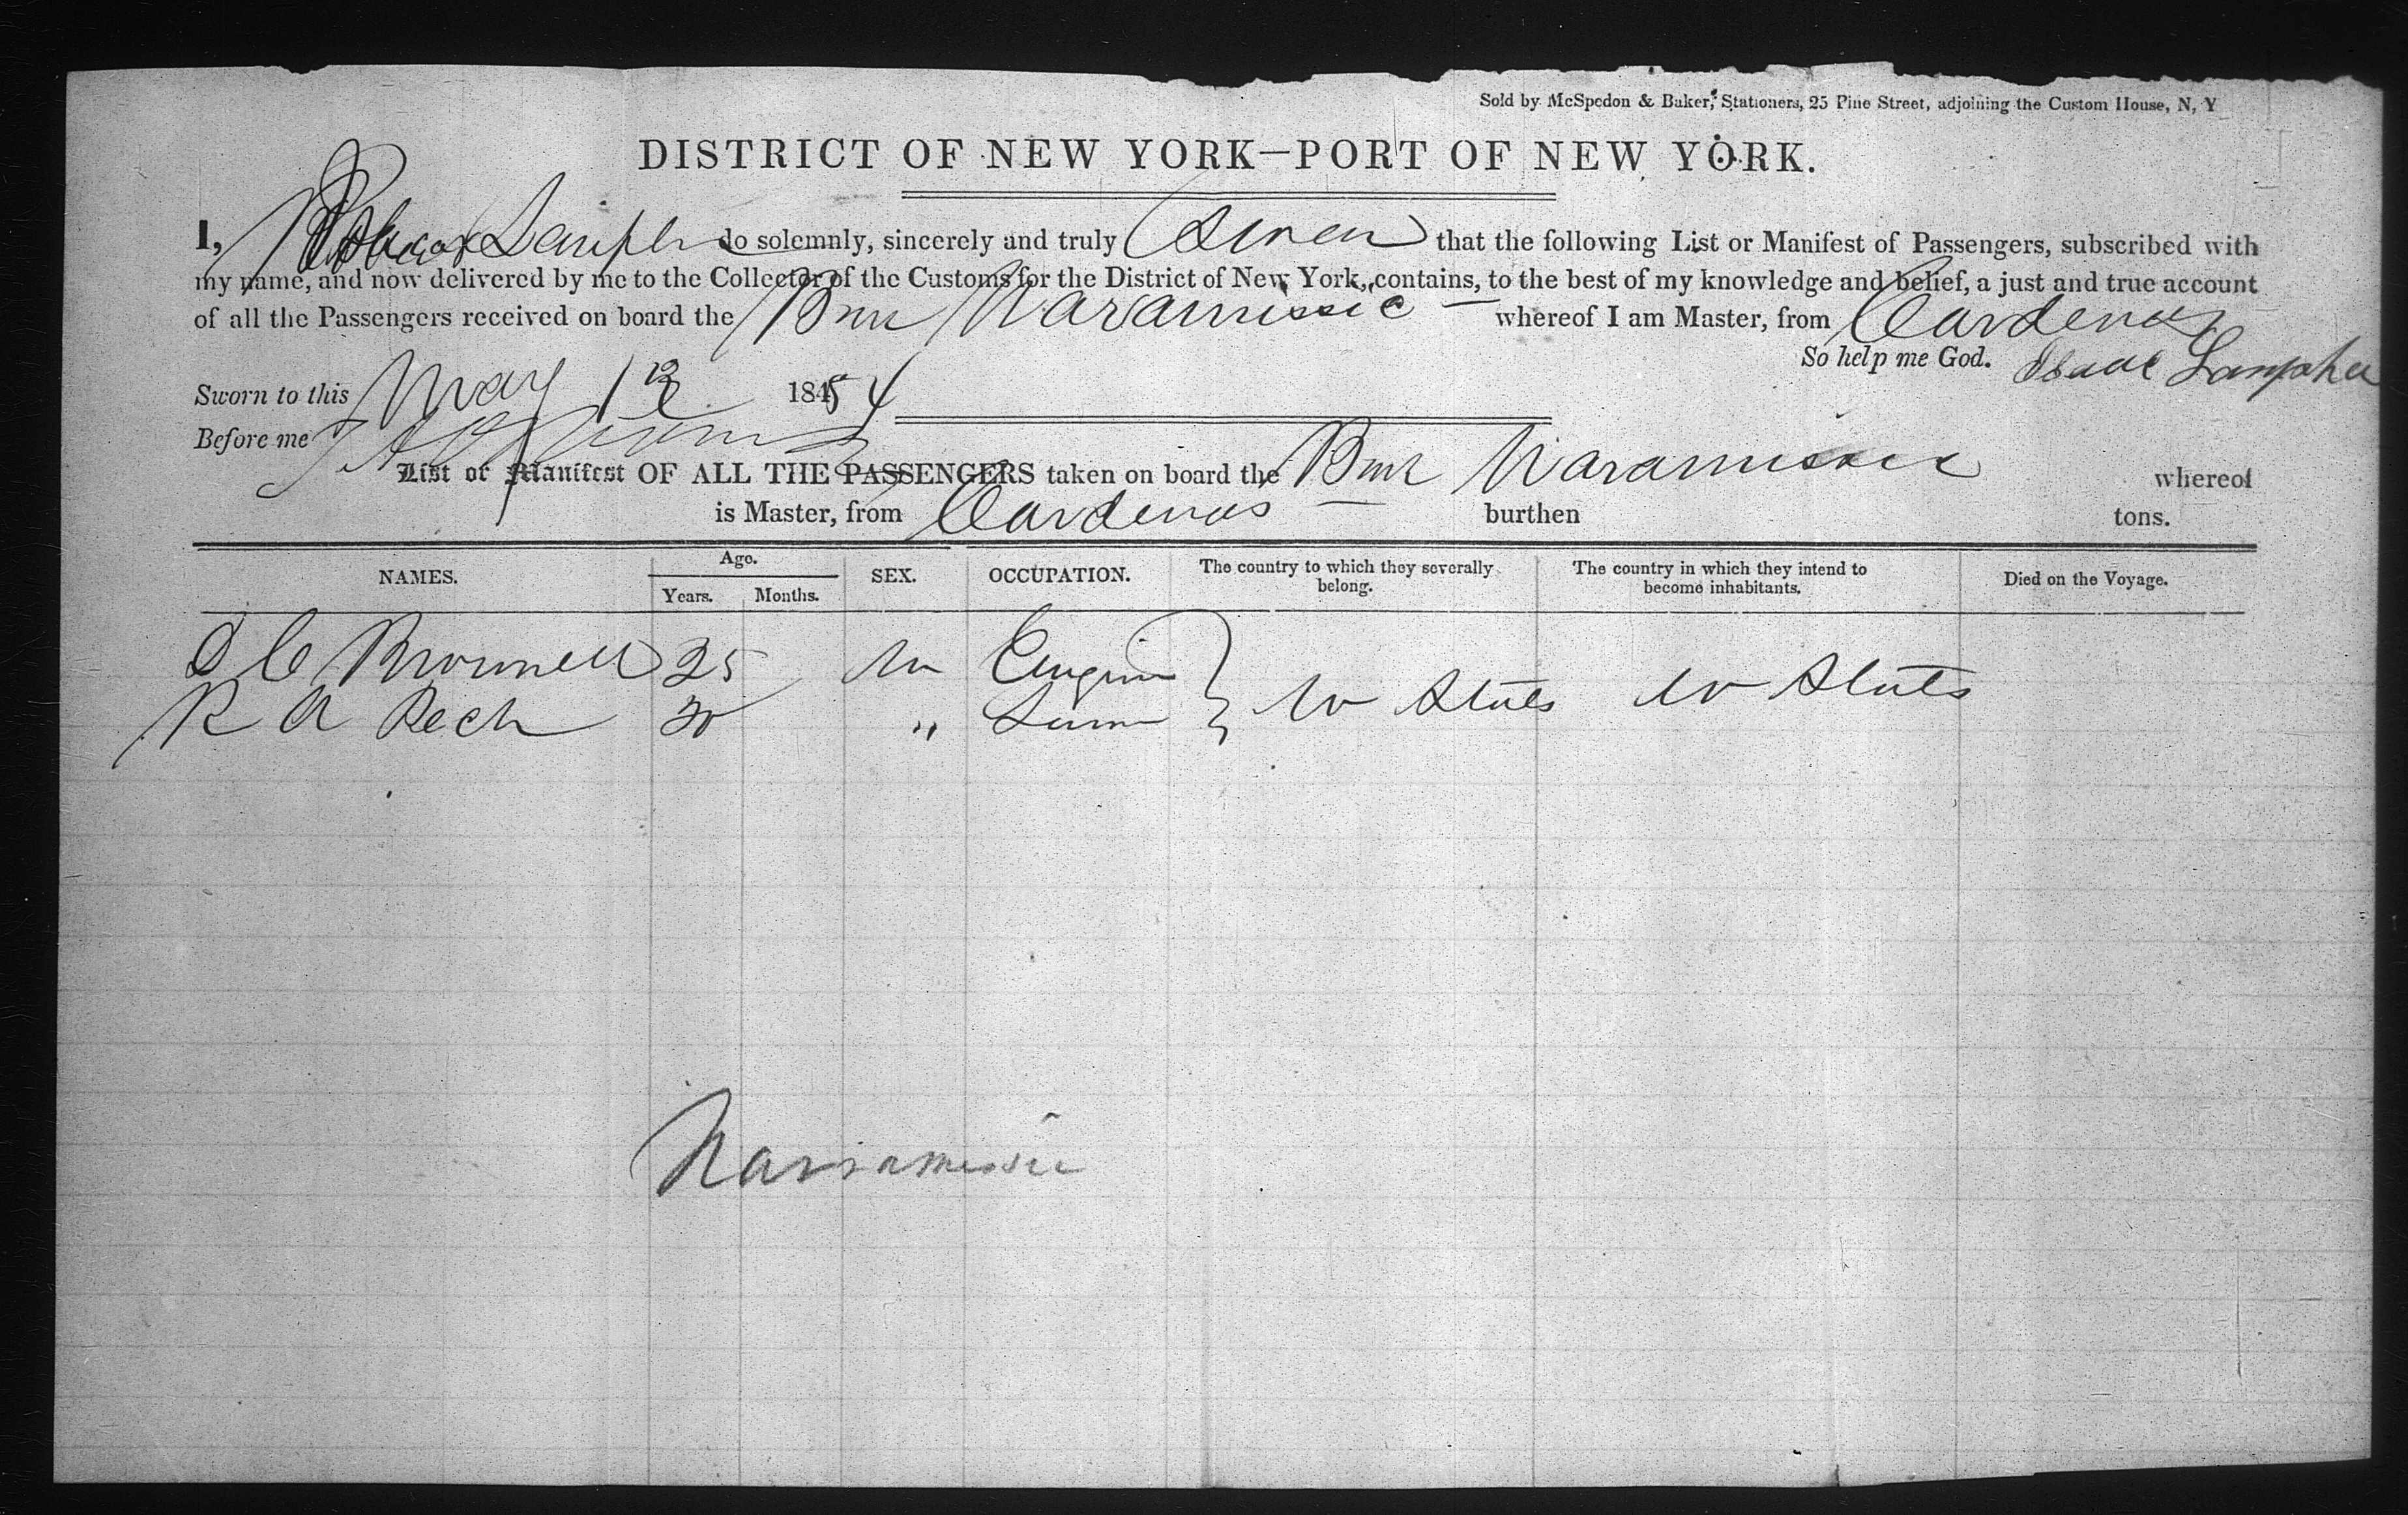 Sold by McSpedon & Baker, Stationers, 25 Pine Street, adjoining the Custom House, N, Y
DISTRICT OF NEW YORK—PORT OF NEW YORK.
I, do solemnly, sincerely and truly that the following List or Manifest of Passengers, subscribed with
my name, and now delivered by me to the Collector of the Customs for the District of New York, contains, to the best of my knowledge and belief, a just and true account
of all the Passengers received on board the whereof I am Master, from Cardenas
So help me God. Isaac Lanpher
Sworn to this May 1854
Before me
List or Manifest OF ALL THE PASSENGERS taken on board the whereof
is Master, from Cardenas burthen tons.
NAMES. Age. Years. Months. SEX. OCCUPATION. The country to which they severally belong. The country in which they intend to become inhabitants. Died on the Voyage.
D C Brownell 25 M Engine
R A Pech 30 " U States U States
Narramissic